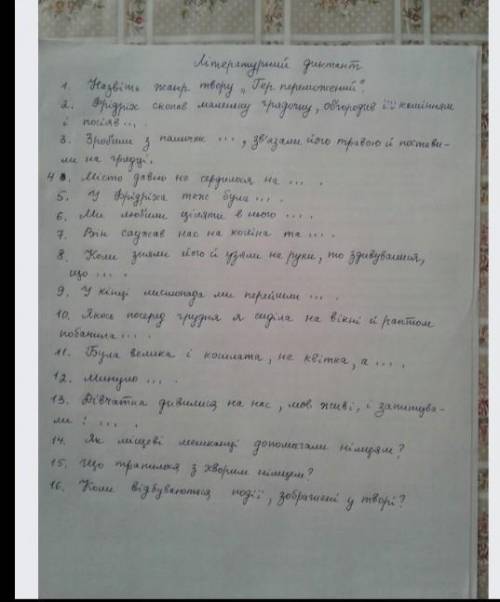 Літературний диктант
1. Назвіть жанр твору „Гер переможений".
2. Фрідріх скопав маленьку грядочку, обгородив її камінням
і посіяв ... .
3. Зробили з паличок ..., зв'язали його травою й постави-
ли на грядці.
4. Місто давно не сердилося на ... .
5. У Фрідріха теж була ... .
6. Ми любили ціляти в нього ... .
7. Він саджав нас на коліна та ... .
8. Коли зняли його й узяли на руки, то здивувалися,
що ... .
9. У кінці листопада ми перейшли ... .
10. Якось посеред грудня я сиділа на вікні й раптом
побачила ... .
11. Була велика і косилата, не квітка, а ... .
12. Минуло ... .
13. Дівчатка дивилися на нас, мов живі, і запитува-
ли: ... .
14. Як місцеві мешканці допомагали німцям?
15. Що трапилося з хворим німцем?
16. Коли відбуваються події, зображені у творі?